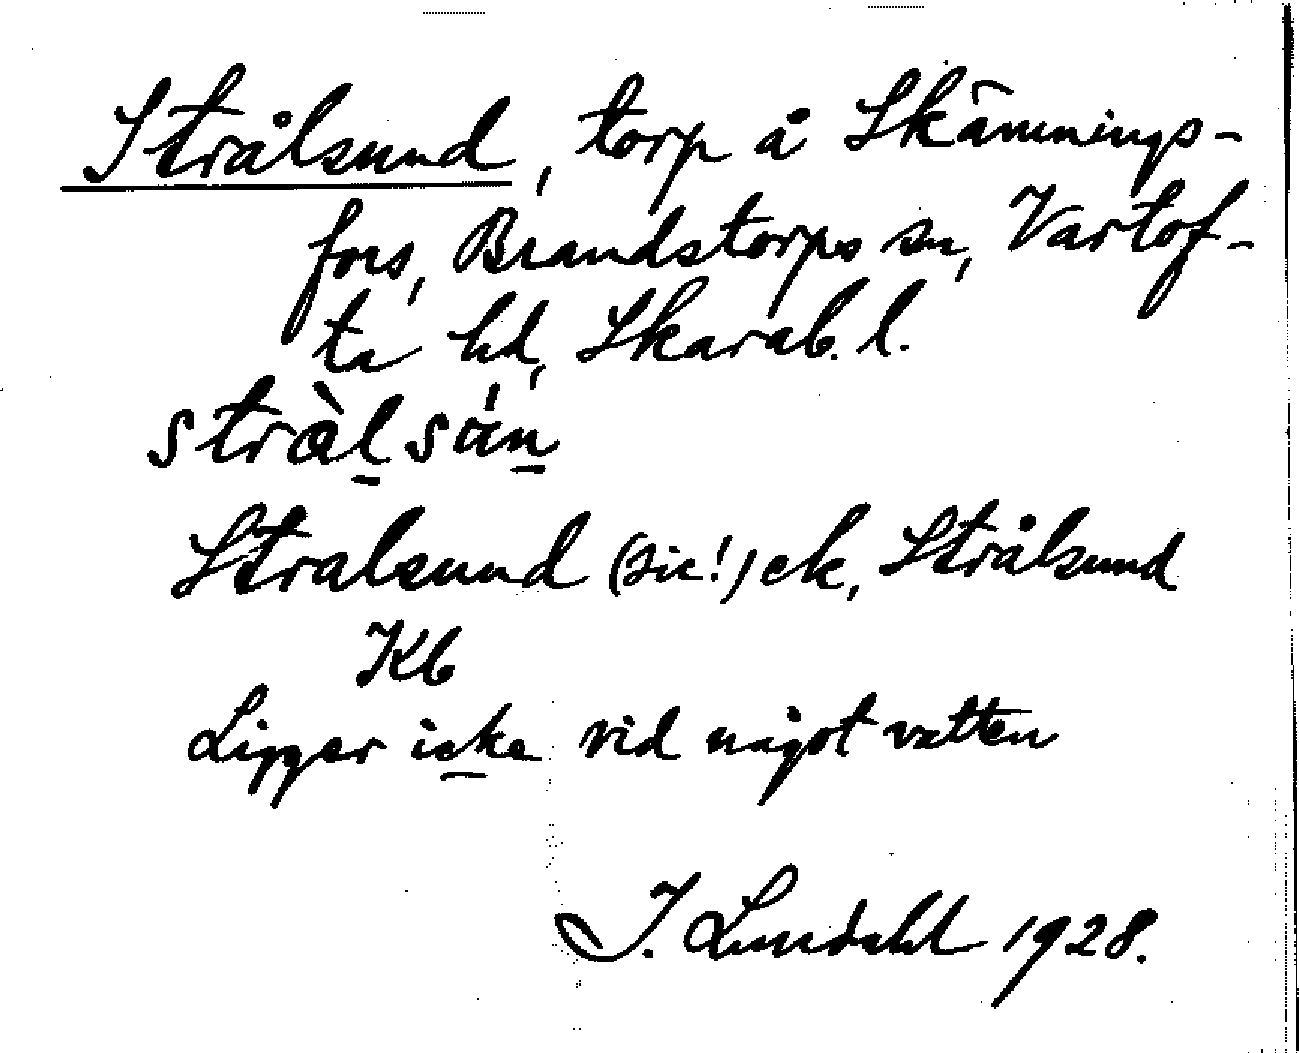 Strålsund, torp å Skämnings-
fors, Brandstorps sn, Vartof-
ta hd, Skarab. l.
stràlsán
Stralsund (sic!) ek, Strålsund
Kb
Ligger icke vid något vatten
J. Lundahl 1928.